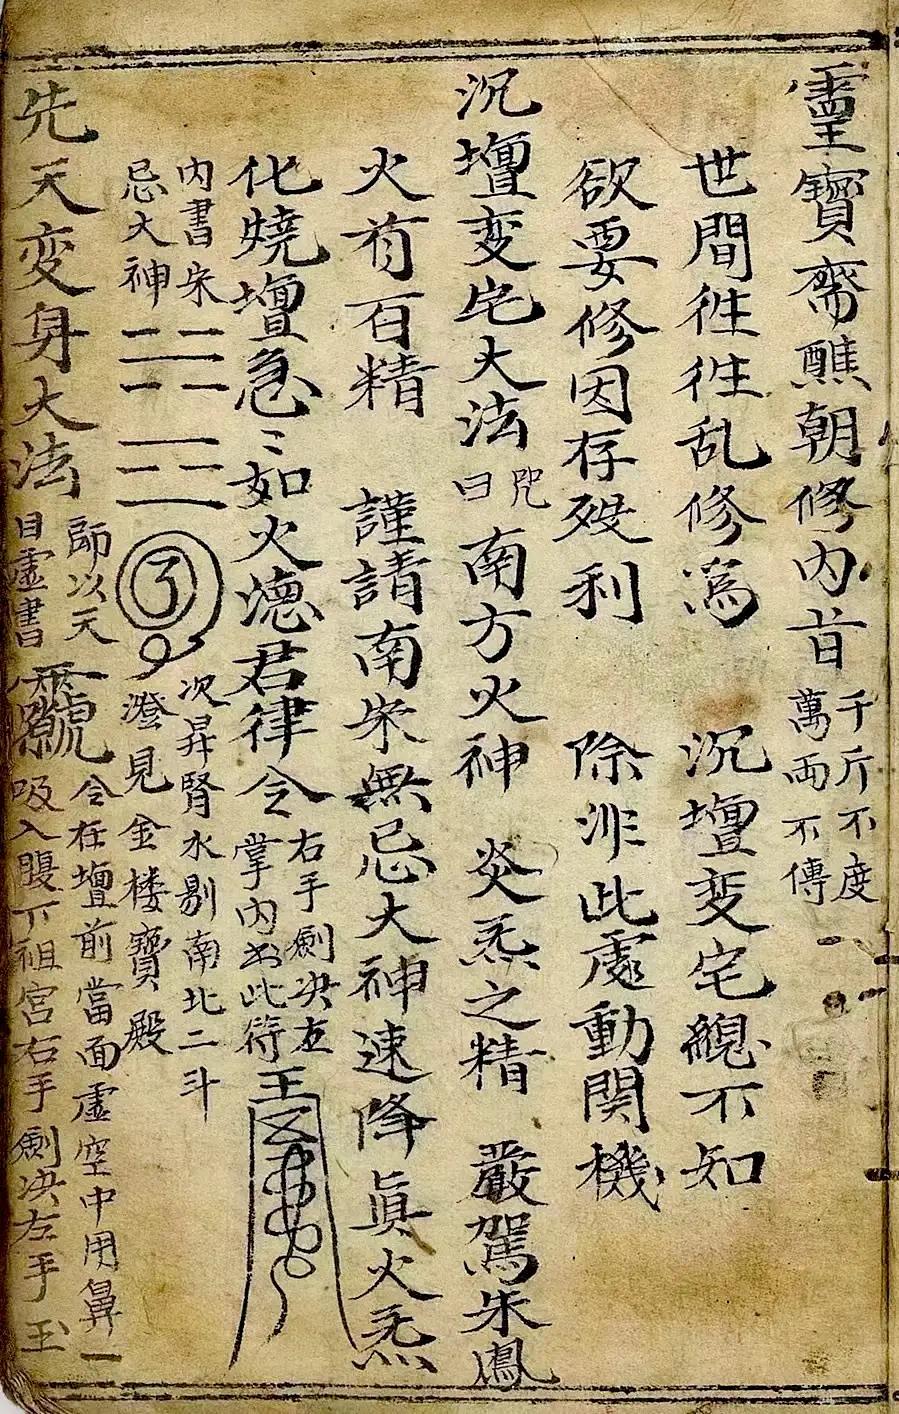 靈寳齋醮朝修内旨 千斤不度
萬両不傳
世間徃徃乱修為 沉壇変宅總不知
欲要修因存殁利 除非此處動関機
沉壇变宅大法 咒曰 南方火神 炎炁之精 嚴駕朱鳳
火首百精 謹請南朱無忌大神速降眞火炁
化燒壇急〻如火德君律令 右手劍决左
掌内书此符
内書朱
忌大神
次昇腎水剔南北二斗
澄見金楼寳殿
先天変身大法 師以天
目虚書
令在壇前當面虚空中用鼻一
吸入腹下祖宫右手劍决左手玉